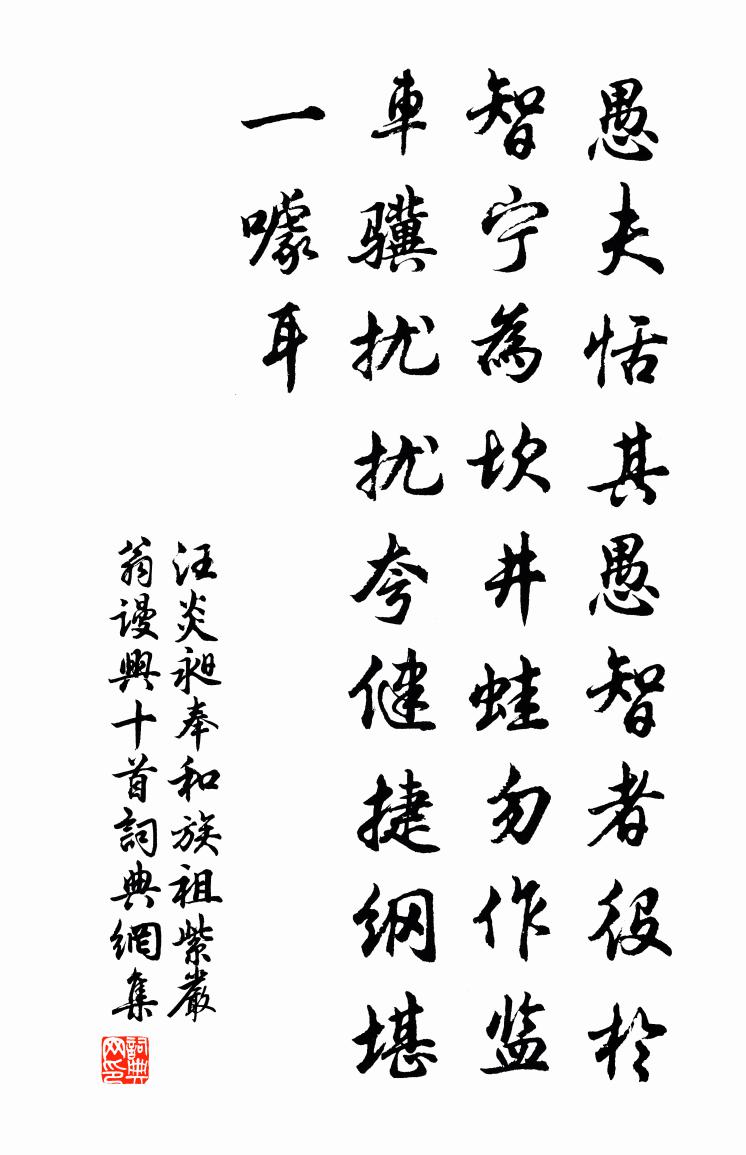 愚夫恬其愚智者役於
智宁為坎井蛙勿作监
車骥扰扰夸健捷纲堪
一噱耳
汪炎昶奉和族祖紫巖
翁谩興十首詞典網集
詞典网印